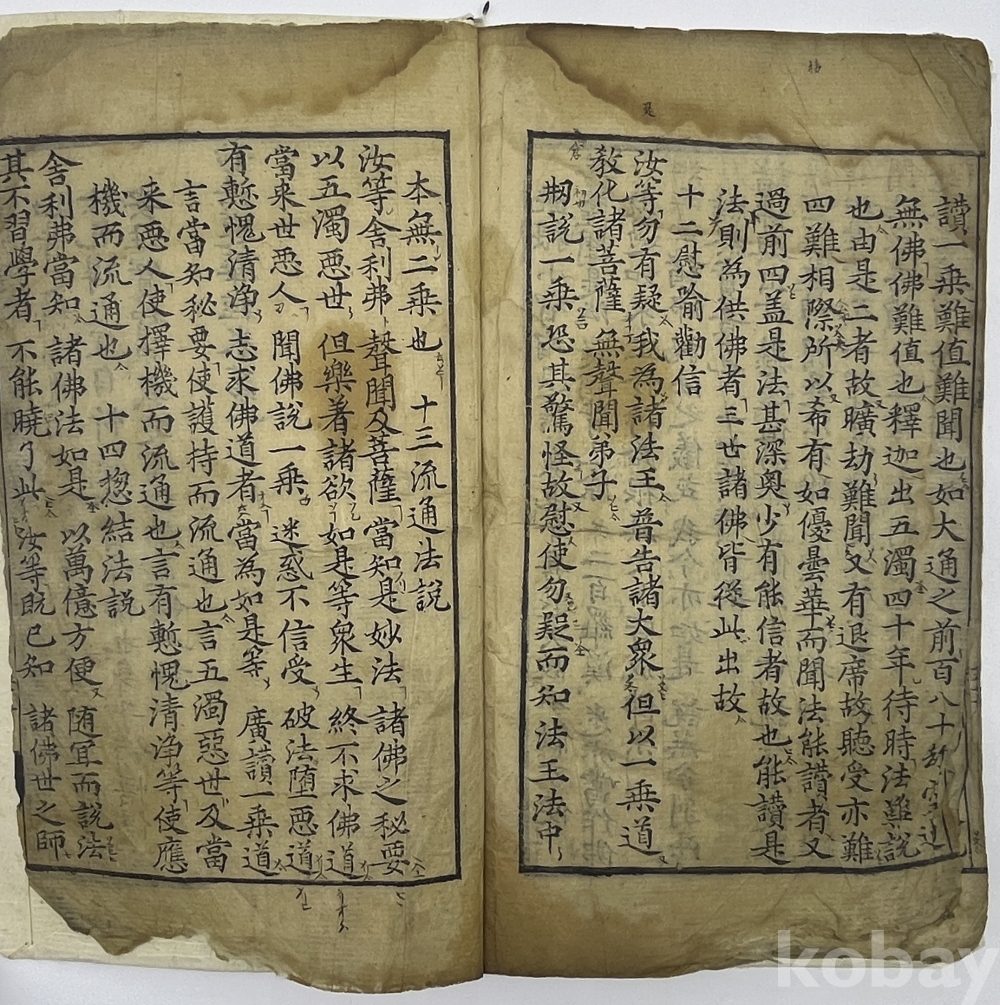 讚一乗難值難聞也如大通之前百八十劫空過
無佛佛難值也釋迦出五濁四十年待時法難說
也由是二者故曠劫難聞又有退席故聽受亦難
四難相際所以希有如優曇華而聞法能讚者又
過前四盖是法甚深奥少有能信者故也能讀是
法則為供佛者三世諸佛皆從此出故
十二慰喻勸信
汝等勿有疑我為諸法王普告諸大衆但以一乗道
教化諸菩薩 無聲聞弟子
剏說一乗恐其驚怪故慰使勿疑而知法王法中
本無二乗也 十三流通法說
汝等舍利弗 聲聞及菩薩 當知是妙法 諸佛之秘要
以五濁悪世 但樂著諸欲 如是等衆生 終不求佛道
當来世悪人 聞佛說一乗 迷惑不信受 破法堕悪道
有慙愧清淨 志求佛道者 當為如是等 廣讚一乗道
言當知秘要使護持而流通也言五濁惡世及當
来悪人使擇機而流通也言有慙愧清淨等使應
機而流通也 十四揔結法說
舍利弗當知 諸佛法如是 以萬億方便 随冝而說法
其不習學者 不能曉了此 汝等既已知 諸佛世之師
kobay